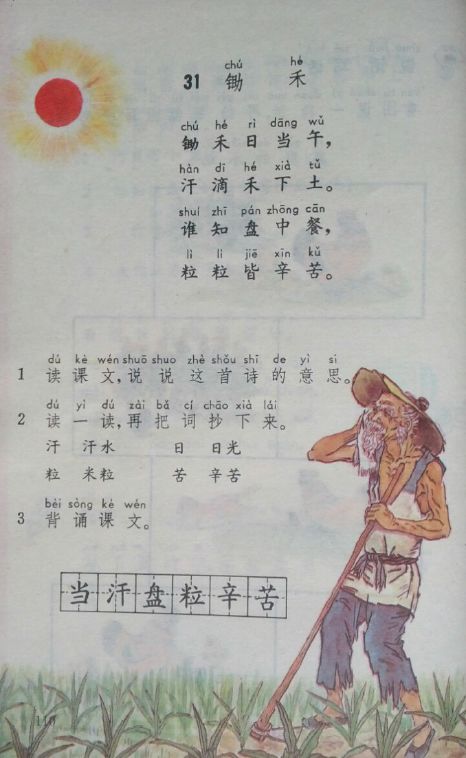 chú hé
31 锄 禾
chú hé rì dāng wǔ
锄 禾 日 当 午，
hàn dī hé xià tǔ
汗 滴 禾 下 土。
shuí zhī pán zhōng cān
谁 知 盘 中 餐，
lì lì jiē xīn kǔ
粒 粒 皆 辛 苦。
dú kè wén shuō shuo zhè shǒu shī de yì si
1 读 课 文，说 说 这 首 诗 的 意 思。
dú yi dú zài bǎ cí chāo xià lái
2 读 一 读，再 把 词 抄 下 来。
汗 汗水 日 日光
粒 米粒 苦 辛苦
bèi sòng kè wén
3 背 诵 课 文。
当 汗 盘 粒 辛 苦
110